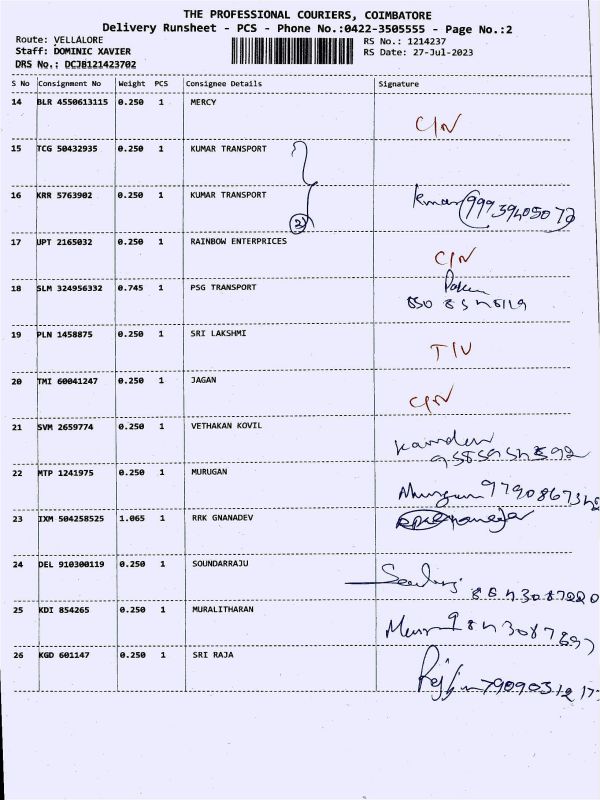 THE PROFESSIONAL COURIERS, COIMBATORE
Delivery Runsheet - PCS - Phone No.:0422-3505555 - Page No.:2
Route: VELLALORE RS No.: 1214237
Staff: DOMINIC XAVIER RS Date: 27-Jul-2023
DRS No.: DCJB121423702
S No Consignment No Weight PCS Consignee Details Signature
14 BLR 4550613115 0.250 1 MERCY
C/N
15 TCG 50432935 0.250 1 KUMAR TRANSPORT
16 KRR 5763902 0.250 1 KUMAR TRANSPORT
2
17 UPT 2165032 0.250 1 RAINBOW ENTERPRICES
C/N
18 SLM 324956332 0.745 1 PSG TRANSPORT
19 PLN 1458875 0.250 1 SRI LAKSHMI
20 TMI 60041247 0.250 1 JAGAN
C/N
21 SVM 2659774 0.250 1 VETHAKAN KOVIL
22 MTP 1241975 0.250 1 MURUGAN
Murugan
23 IXM 504258525 1.065 1 RRK GNANADEV
24 DEL 910300119 0.250 1 SOUNDARRAJU
25 KDI 854265 0.250 1 MURALITHARAN
26 KGD 601147 0.250 1 SRI RAJA